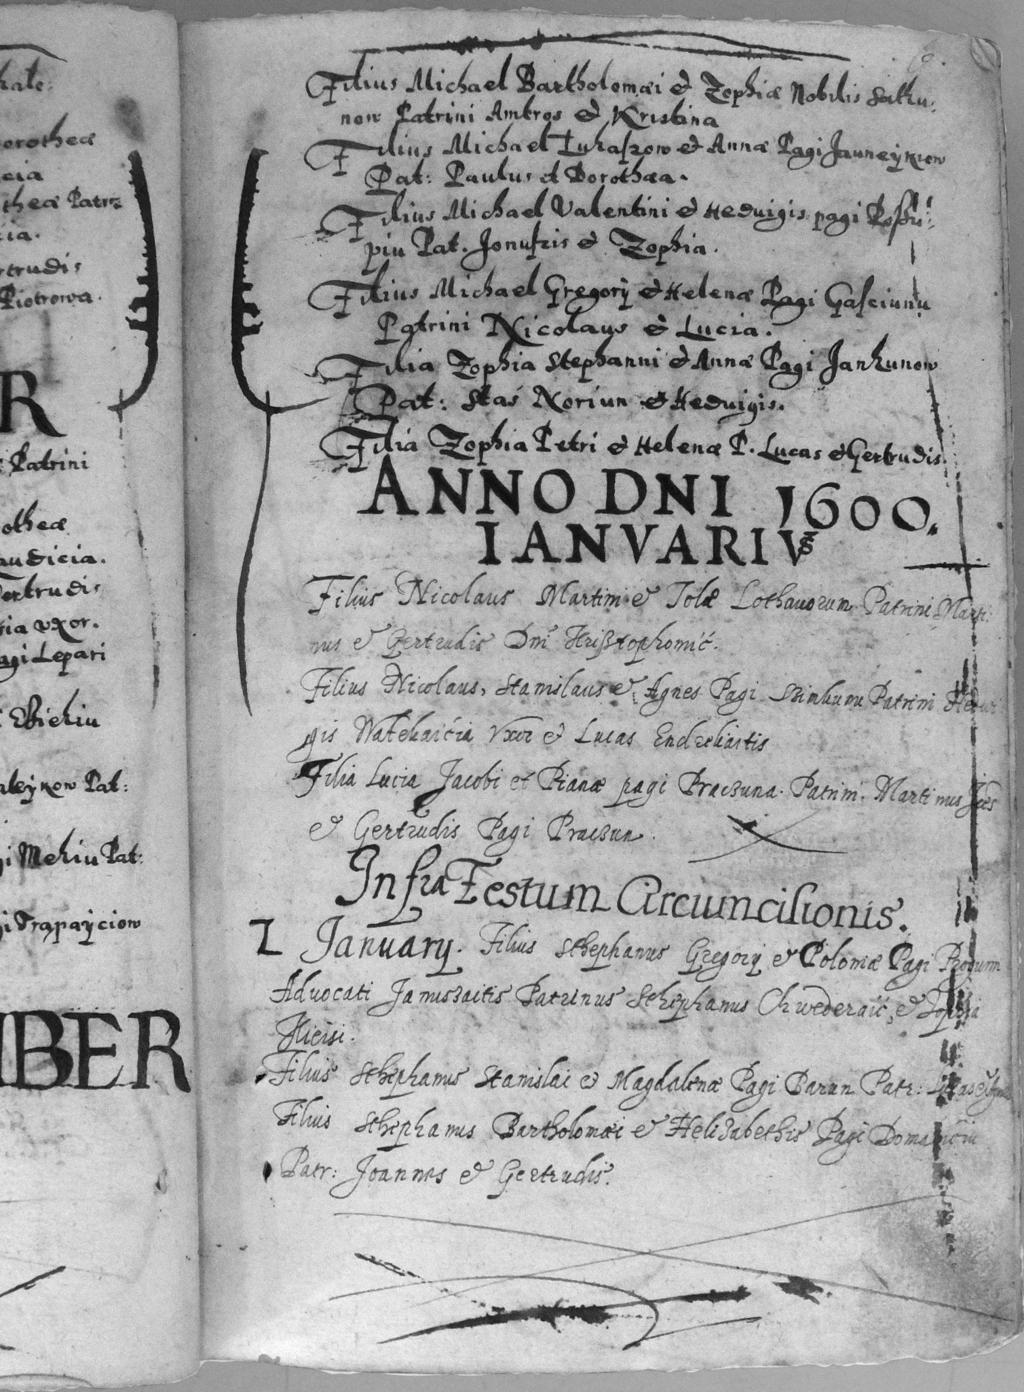 hate:
orotheæ
cia
theæ Patri
cia.
rtrudis
Piotrowa.
R
Patrini
otheæ
audicia.
ertrudis
tia uxor.
agi Lepari
Ebiehiu
aleykow Pat:
gi Mehiu Pat:
gi Trapaycion
BER
Filius Michael Bartholomæi & Zophiæ Nobilis
now Patrini Ambros & Kristina
Filius Michael Lukaszow & Annæ Pagi Jauneykiow
Pat: Paulus et Dorothæa.
Filius Michael Valentini & Heduigis pagi
piu Pat. Jonuszis & Zophia.
Filius Michael Gregorij & Helenæ Pagi Gasciunu
Patrini Nicolaus & Lucia.
Filia Zophia Stephanni & Annæ Pagi Jankunow
Pat: Stas Noriun & Heduigis.
Filia Zophia Petri & Helenæ P. Lucas & Gertrudis.
ANNO DNI 1600.
IANVARIVS
Filius Nicolaus Martini & Jolæ Lothauorum Patrini Marti:
nus & Gertrudis Dni
Filius Nicolaus, Stanislaus & Agnes Pagi Patrini Hedui
gis Uxor & Lucas
Filia Lucia Jacobi et Dianæ pagi Praczuna. Patrini. Martinus
& Gertrudis Pagi Praczun.
Infra Festum Circumcisionis.
2 January. Filius Sthephanus Gregorij & Polomæ Pagi
Advocati Januszaitis Patrinus Sthephanus Chwederaic, & Zophia
Filius Sthephanus Stanislai & Magdalenæ Pagi Baran Patr:
Filius Sthephanus Bartholomæi & Helizabethis Pagi
Patr: Joannes & Gertrudis.